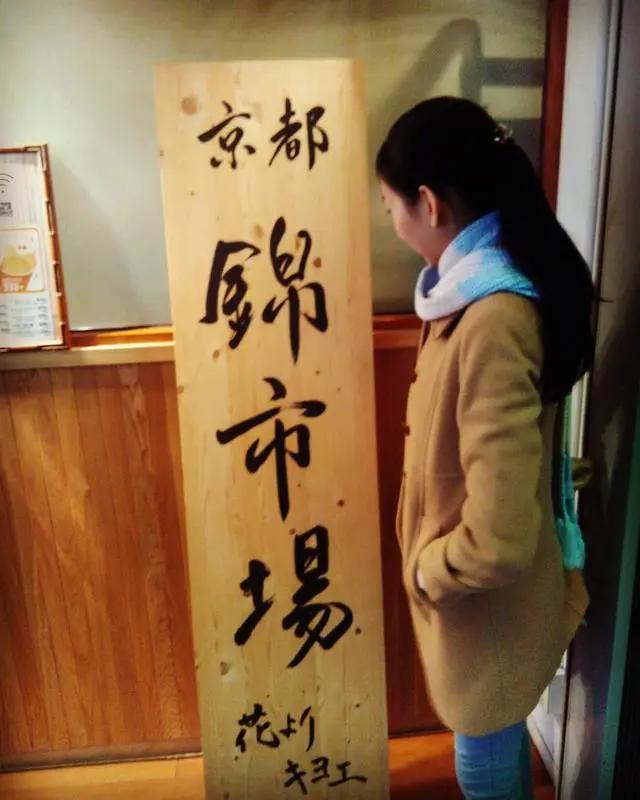 京都
錦市場
花より
キヨエ